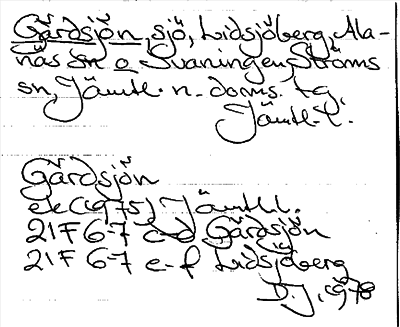 Gärdsjön, sjö, Lidsjöberg, Ala-
näs sn o Svaningen, Ströms
sn, Jämtl. n. doms. tg,
Jämtl. l.
Gärdsjön
ek (1975) Jämtl l.
21F 6-7 c-d Gärdsjön
21F 6-7 e-f Lidsjöberg
D.J, 1978